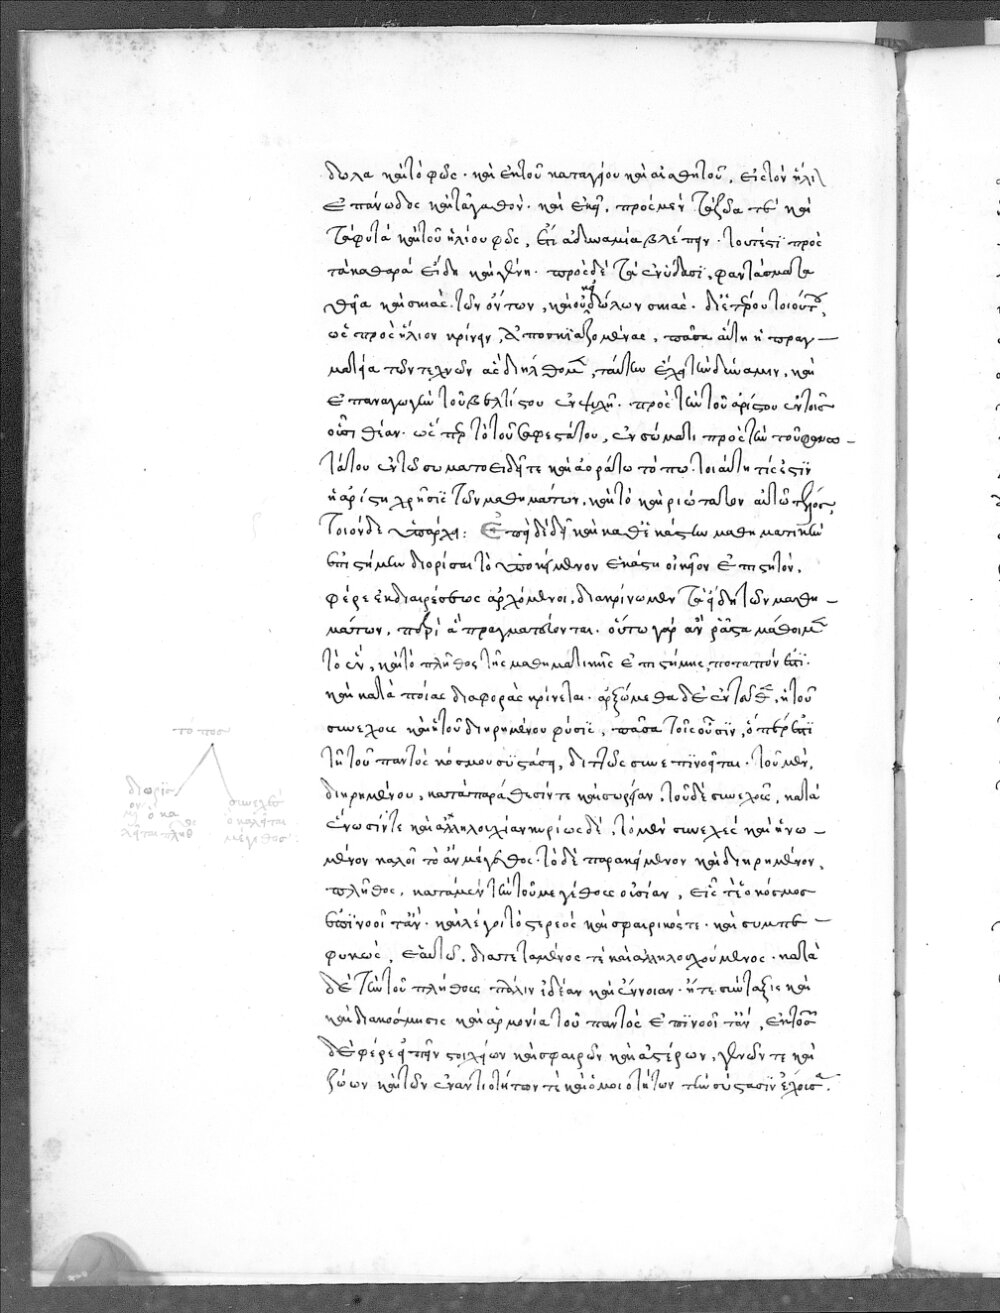 δωλα καὶ τὸ φῶς· καὶ ἐκ τοῦ καταγείου καὶ αἰσθητοῦ, εἰς τὸν ἥλιον
ἐπάνωδος καὶ τἀγαθὸν· καὶ ἐκεῖ, πρὸς μὲν τὰ ζῶα τε καὶ
τὰ φυτὰ καὶ τοῦ ἡλίου φῶς, ἔτι ἀδυναμία βλέπειν· τουτέστι πρὸς
τὰ καθαρὰ εἴδη καὶ γένη· πρὸς δὲ τὰ ἐν ὕδασι, φαντάσματα
θεῖα καὶ σκιὰς τῶν ὄντων, καὶ οὐκ εἰδώλων σκιὰς· δι' ἑτέρου τοιούτου,
ὡς πρὸς ἥλιον κρίνειν, ἀποσκιαζομένας, πᾶσα αὕτη ἡ πραγ-
ματεία τῶν τεχνῶν ἃς διήλθομεν, ταύτην ἔχει τὴν δύναμιν, καὶ
ἐπαναγωγὴν τοῦ βελτίστου ἐν ψυχῇ· πρὸς τὴν τοῦ ἀρίστου ἐν τοῖς
οὖσι θέαν· ὥσπερ τότε τοῦ σαφεστάτου, ἐν σώματι πρὸς τὴν τοῦ φανω-
τάτου ἐν τῷ σωματοειδεῖ τε καὶ ὁρατῷ τόπῳ· τοιαύτη τίς ἐστιν
ἡ ἀρίστη χρῆσις τῶν μαθημάτων, καὶ τὸ κυριώτατον αὐτῶν τέλος,
τοιόνδε ὑπάρχει: Ἐπεὶ δὲ δεῖ καὶ καθ' ἑκάστην μαθηματικὴν
ἐπιστήμην διορίσαι τὸ ὑποκείμενον ἑκάστῃ οἰκεῖον ἐπιστητόν,
φέρε ἐκ διαιρέσεως ἀρχόμενοι, διακρίνωμεν τὰ εἴδη τῶν μαθη-
μάτων, περὶ ἃ πραγματεύονται· οὕτω γὰρ ἂν ῥᾷστα μάθοιμεν
τὸ ἓν, καὶ τὸ πλῆθος τῆς μαθηματικῆς ἐπιστήμης, ποταπόν ἐστι·
καὶ κατὰ ποίας διαφορὰς κρίνεται· ἀρξώμεθα δὲ ἐντεῦθεν, ἡ τοῦ
συνεχοῦς καὶ ἡ τοῦ διῃρημένου φύσις, πᾶσα τοῖς οὖσιν, ὅπερ ἐστὶ
τῇ τοῦ παντὸς κόσμου συστάσει, διττῶς συνεπινοεῖται· τοῦ μὲν,
διῃρημένου, κατὰ παράθεσίν τε καὶ σωρείαν, τοῦ δὲ συνεχοῦς, κατὰ
ἕνωσίν τε καὶ ἀλληλουχίαν κυρίως δὲ, τὸ μὲν συνεχὲς καὶ ἡνω-
μένον καλοῖτο ἂν μέγεθος· τὸ δὲ παρακείμενον καὶ διῃρημένον,
πλῆθος, κατὰ μὲν τὴν τοῦ μεγέθους οὐσίαν, εἷς τε ὁ κόσμος
ἐπινοοῖτ' ἂν· καὶ λέγοιτο στερεός καὶ σφαιρικός τε· καὶ συμπε-
φυκὼς, ἑαυτῷ. διατεταμένος τε καὶ ἀλληλουχούμενος· κατὰ
δὲ τὴν τοῦ πλήθους πάλιν ἰδέαν καὶ ἔννοιαν· ἥ τε σύνταξις καὶ
καὶ διακόσμησις καὶ ἁρμονία τοῦ παντὸς ἐπινοοῖτ' ἂν, ἐκ τόσων
δὲ φέρε εἰπεῖν στοιχείων καὶ σφαιρῶν καὶ ἀστέρων, γενῶν τε καὶ
ζώων καὶ τῶν ἐναντιοτήτων τὲ καὶ ὁμοιοτήτων τὴν σύστασιν ἔχοις·
τὸ ποσὸν
διωρισ
συνεχὲς
μν ὃ κα
ὃ καλεῖται
λεῖται πλῆθος
μέγεθος